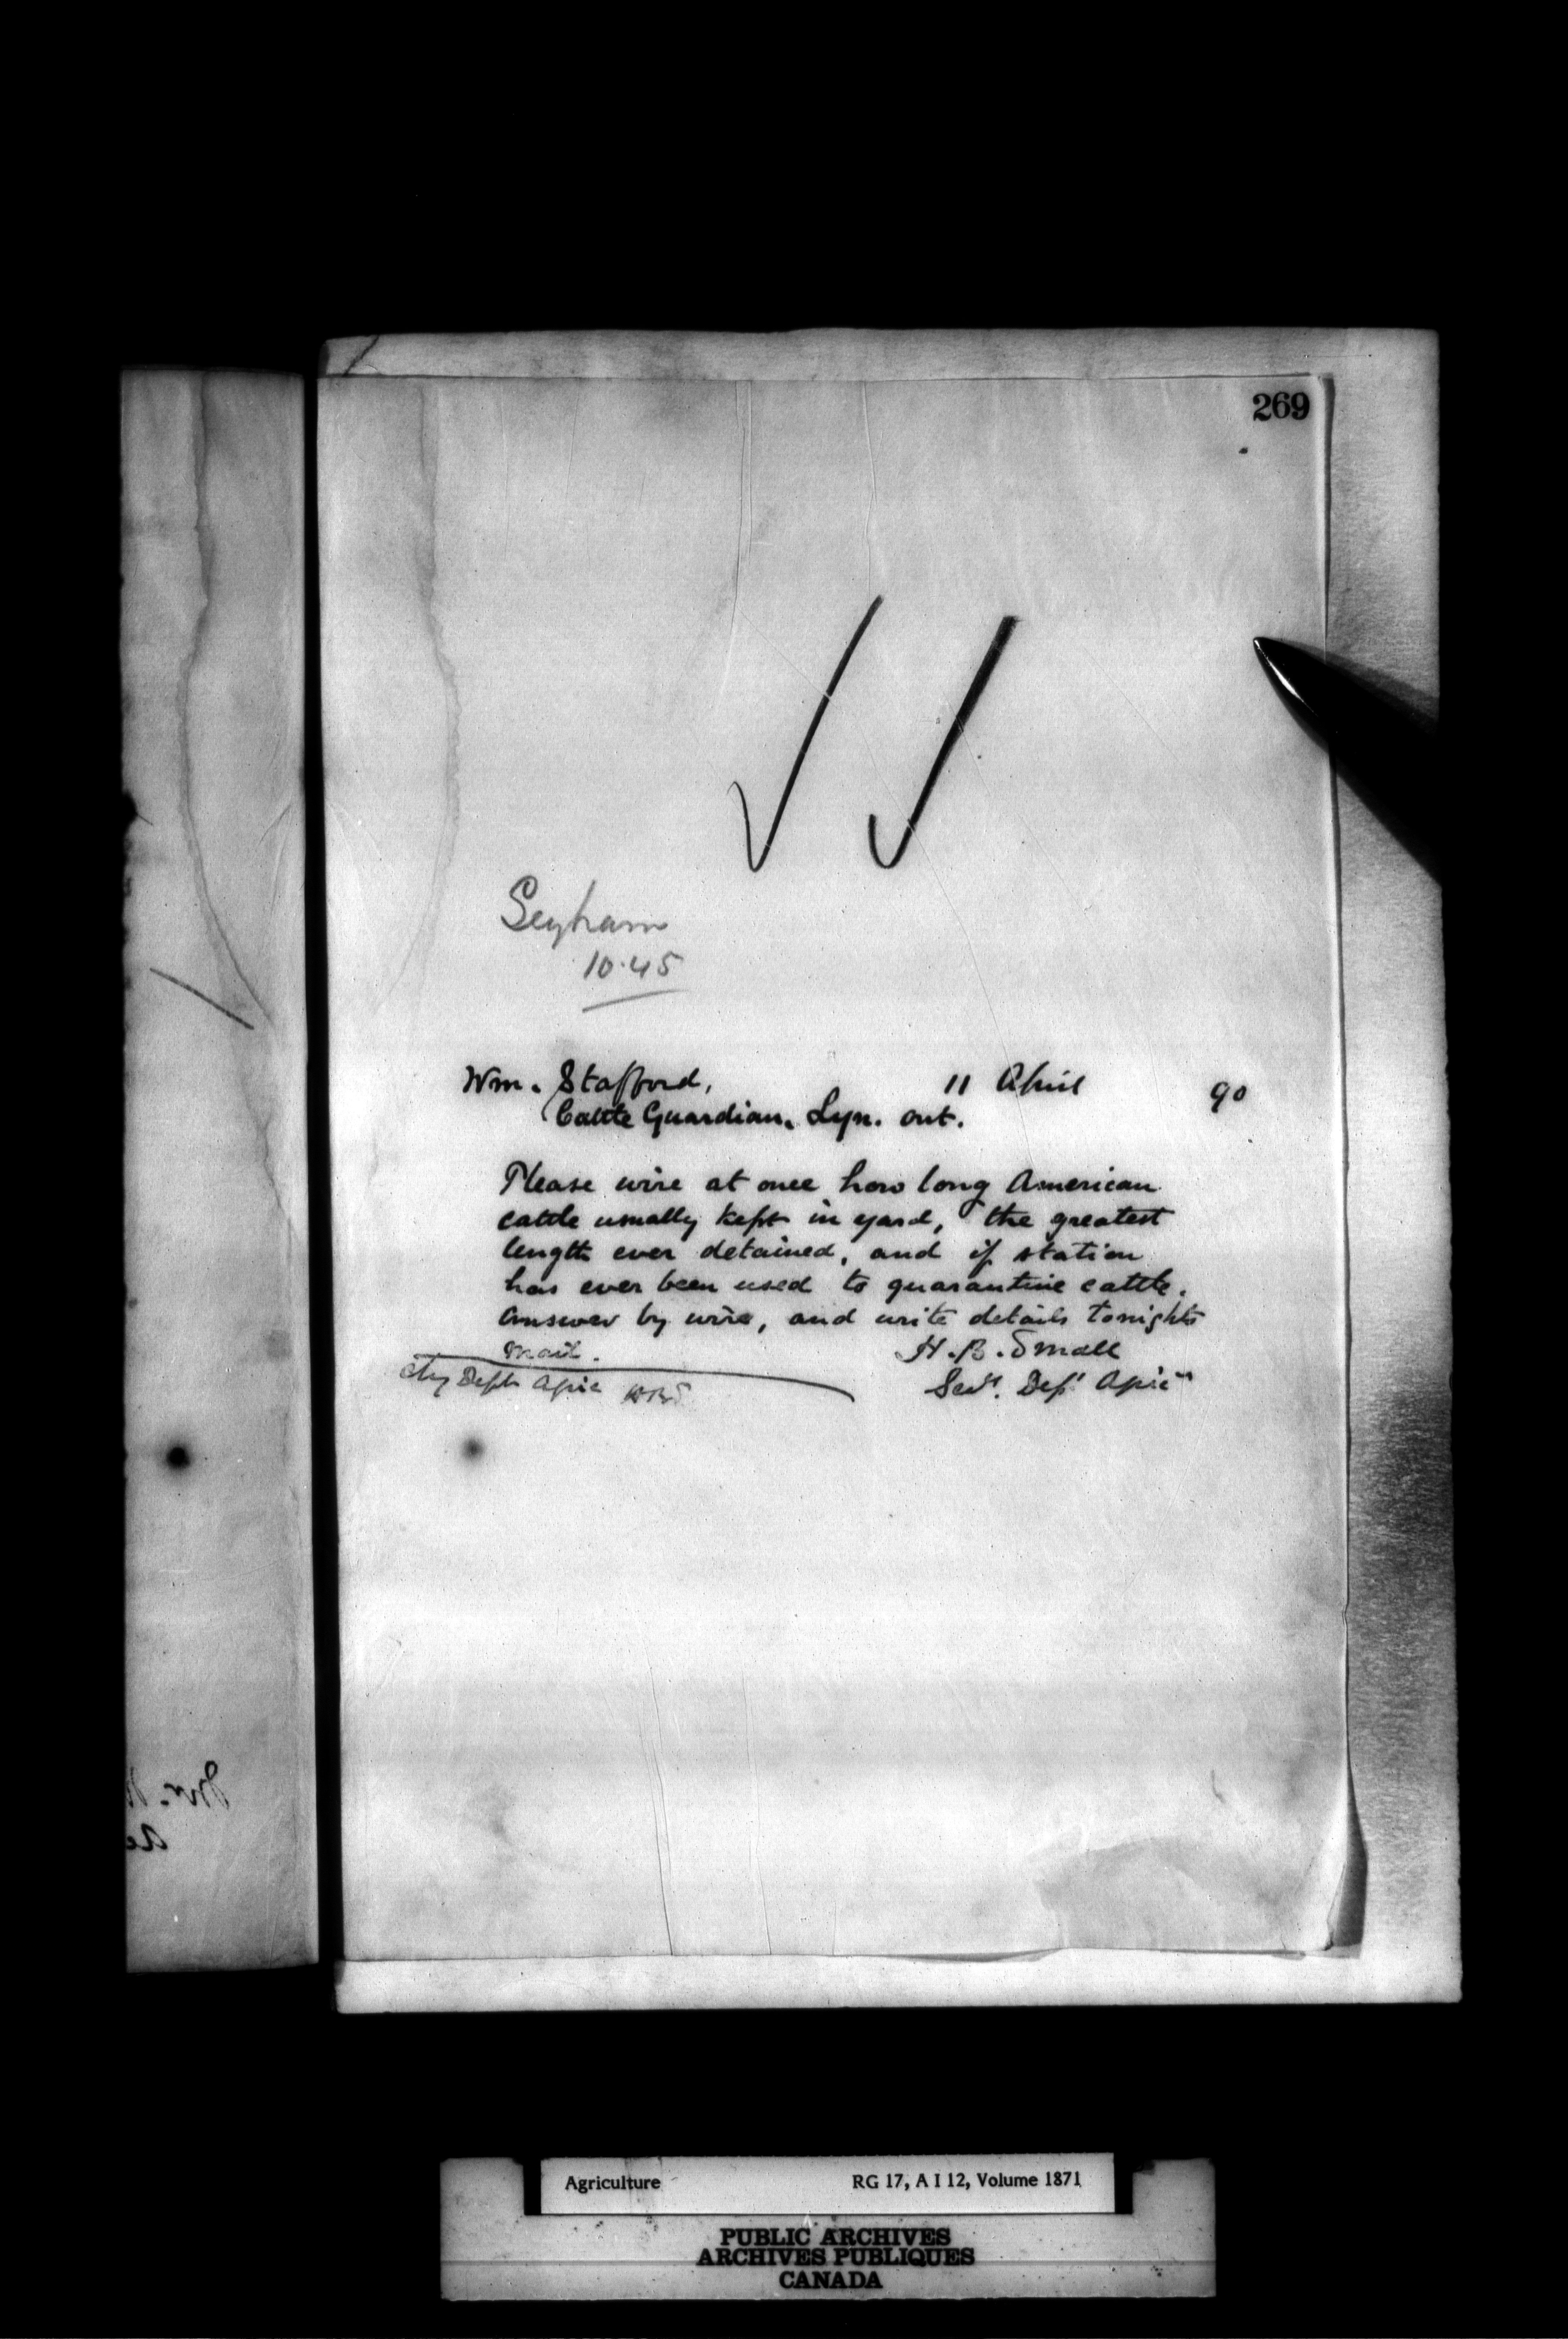 269
10.45
Wm. Stafford, 11 April 90
Cattle Guardian, Lyn. Ont.
Please wire at once how long American
cattle usually kept in yard, the greatest
length ever detained, and if station
has ever been used to quarantine cattle.
Answer by wire, and write details tonights
mail. H. B. Small
Chg Dept Agric HBS Secy. Dept Agric
Agriculture RG 17, A I 12, Volume 1871
PUBLIC ARCHIVES
ARCHIVES PUBLIQUES
CANADA